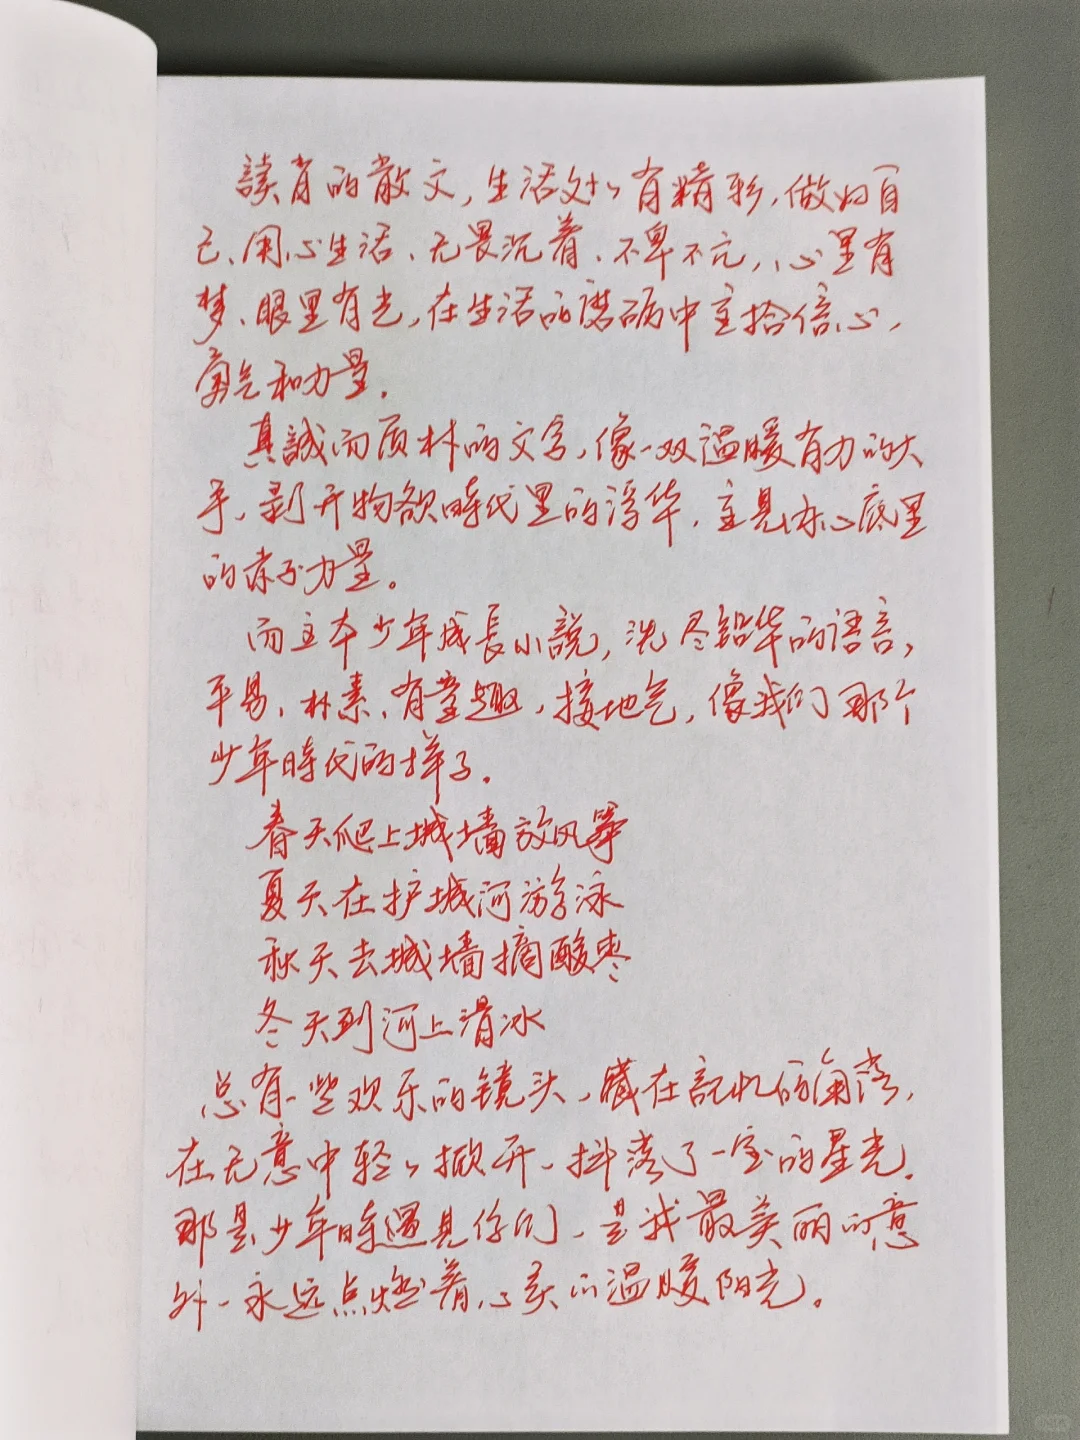 讀肖的散文，生活处处有精彩，做好自
己、用心生活、无畏沉着、不卑不亢，心里有
梦、眼里有光，在生活的磨砺中重拾信心，
勇气和力量。
真誠而质朴的文字，像一双温暖有力的大
手，剥开物欲時代里的浮华，重見你心底里
的赤子力量。
而这本少年成長小説，洗尽铅华的语言，
平易、朴素、有童趣，接地气，像我们那个
少年時代的样子。
春天爬上城墙放风筝
夏天在护城河游泳
秋天去城墙摘酸枣
冬天到河上滑冰
总有一些欢乐的镜头，藏在記忆的角落，
在无意中轻轻掀开，抖落了一室的星光。
那是少年時遇見你们，是我最美丽的意
外，永远点燃着心头的温暖阳光。